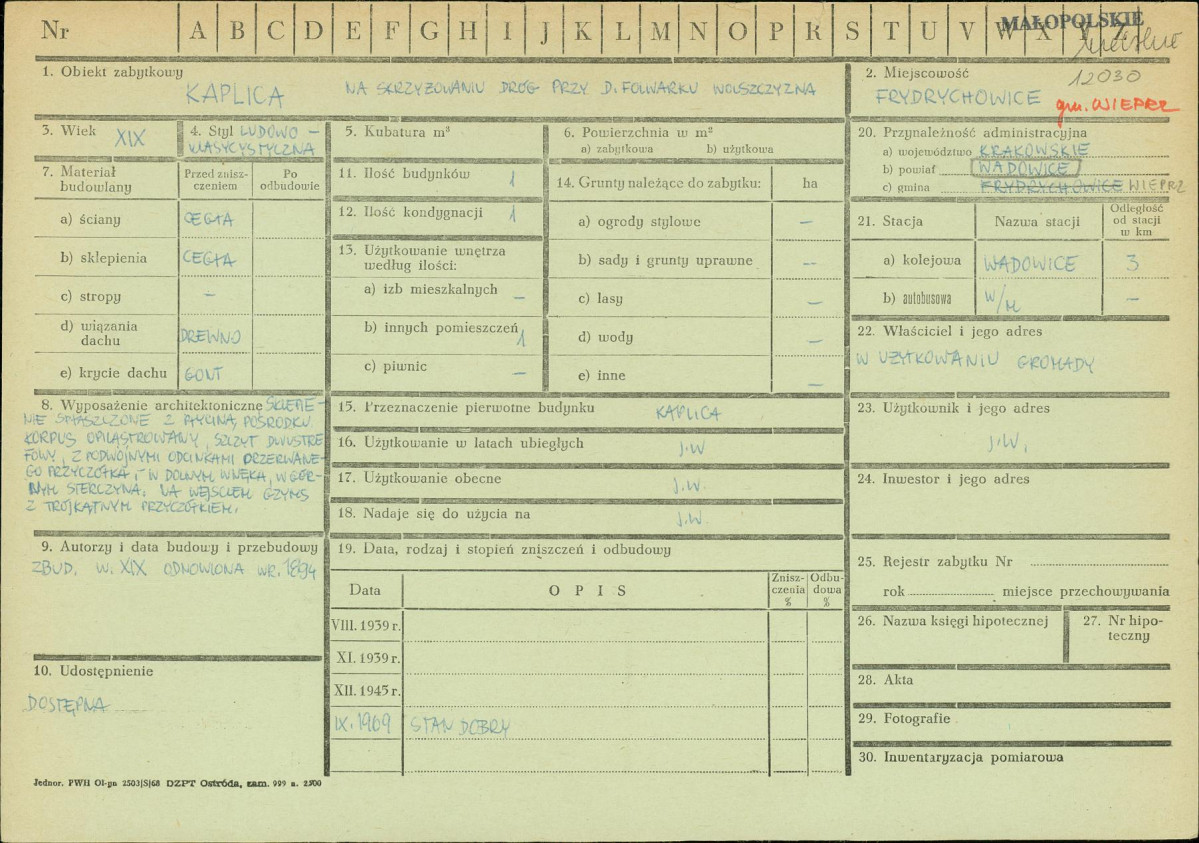 Nr A B C D E F G H I J K L M N O P R S T U V W X Y Z
MAŁOPOLSKIE
12030
1. Obiekt zabytkowy
KAPLICA NA SKRZYŻOWANIU DRÓG PRZY D. FOLWARKU WOLSZCZYZNA
2. Miejscowość
FRYDRYCHOWICE gm. WIEPRZ
3. Wiek XIX
4. Styl LUDOWO –
KLASYCYSTYCZNA
5. Kubatura m³
6. Powierzchnia w m²
a) zabytkowa b) użytkowa
7. Materiał budowlany
Przed znisz-
czeniem
Po
odbudowie
a) ściany CEGŁA
b) sklepienia CEGŁA
c) stropy –
d) wiązania
dachu DREWNO
e) krycie dachu GONT
8. Wyposażenie architektoniczne SKLEPIE-
NIE SPŁASZCZONE Z PŁYCINĄ POŚRODKU.
KORPUS OPILASTROWANY, SZCZYT DWUSTRE-
FOWY, Z PODWÓJNYMI ODCINKAMI PRZERWANE-
GO PRZYCZÓŁKA, W DOLNYM WNĘKA, W GÓR-
NYM STERCZYNA. NA WEJŚCIEM GZYMS
Z TRÓJKĄTNYM PRZYCZÓŁKIEM.
9. Autorzy i data budowy i przebudowy
ZBUD. W. XIX ODNOWIONA W R. 1894
10. Udostępnienie
DOSTĘPNA
11. Ilość budynków 1
12. Ilość kondygnacji 1
13. Użytkowanie wnętrza
według ilości:
a) izb mieszkalnych –
b) innych pomieszczeń 1
c) piwnic –
14. Grunty należące do zabytku: ha
a) ogrody stylowe –
b) sady i grunty uprawne –
c) lasy –
d) wody –
e) inne –
15. Przeznaczenie pierwotne budynku KAPLICA
16. Użytkowanie w latach ubiegłych j.W
17. Użytkowanie obecne j.W.
18. Nadaje się do użycia na j.W.
19. Data, rodzaj i stopień zniszczeń i odbudowy
Data OPIS
Znisz-
czenia
%
Odbu-
dowa
%
VIII. 1939 r.
XI. 1939 r.
XII. 1945 r.
IX. 1969 STAN DOBRY
20. Przynależność administracyjna
a) województwo KRAKOWSKIE
b) powiat WADOWICE
c) gmina FRYDRYCHOWICE WIEPRZ
21. Stacja Nazwa stacji
Odległość
od stacji
w km
a) kolejowa WADOWICE 3
b) autobusowa W/M –
22. Właściciel i jego adres
W UŻYTKOWANIU GROMADY
23. Użytkownik i jego adres
j.W.
24. Inwestor i jego adres
25. Rejestr zabytku Nr
rok miejsce przechowywania
26. Nazwa księgi hipotecznej
27. Nr hipo-
teczny
28. Akta
29. Fotografie
30. Inwentaryzacja pomiarowa
Jednor. PWH Ol-gn 2503/S/68 DZPT Ostróda, zam. 999 n. 2500